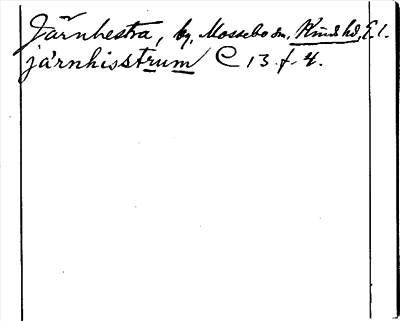 Järnhestra, by, Mossebo sn, Kinds hd, E. l.
järnhisstrum C 13 f. 4.